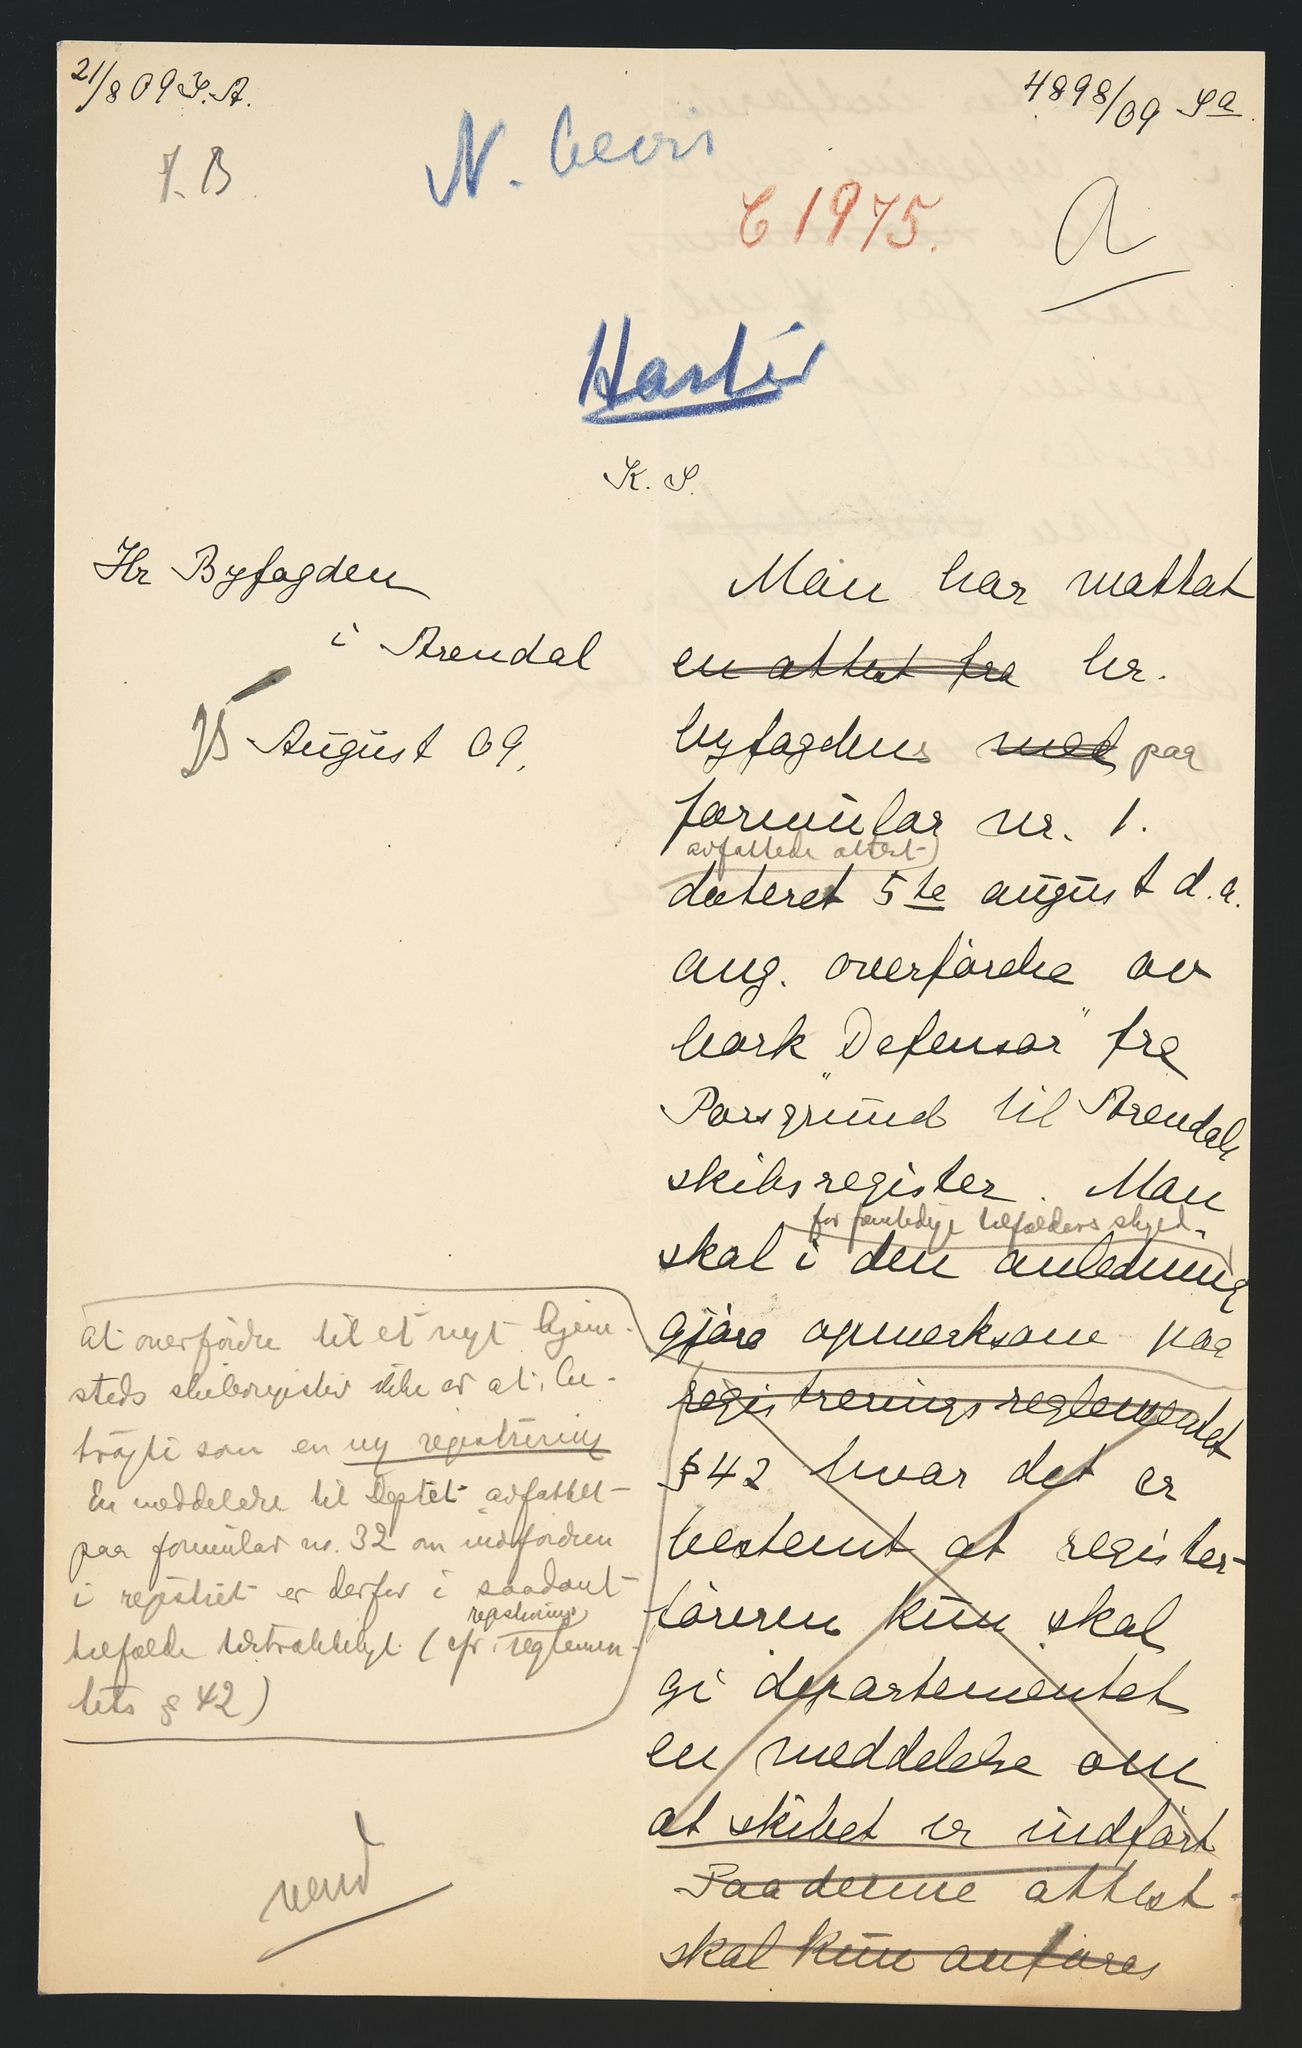 21/8 09 S.A.
4898/09 Sa.
J.B.
N. bevis
C 1975.
a
Haster
K. S.
Hr Byfogden
i Arendal
25 August 09.
Man har mottat
en attest fra hr.
byfogdens med paa
formular nr. 1.
avfattede attest
dateret 5te august d.a.
ang. overförelse av
bark "Defensor" fra
Porsgrund til Arendals
skibsregister. Man
for fremtidige tilfælders skyld
skal i den anledning
gjöre opmerksom paa
at overförelse til et nyt hjem-
steds skibsregister ikke er at be-
tragte som en ny registrering
En meddelelse til Deptet avfattet
paa formular no. 32 om indförelsen
i registret er derfor i saadant
registrerings
tilfælde tilstrækkeligt (cfr. reglemen-
tets § 42)
registreringsreglementet
§ 42 hvor det er
bestemt at register-
föreren kun skal
gi departementet
en meddelelse om
at skibet er indfört
Paa denne attest
skal kun anföres
vend